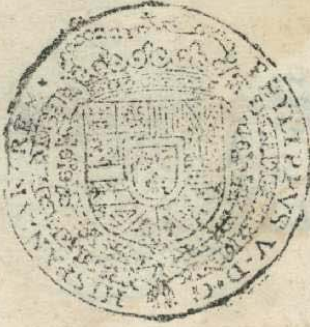 PHILIPPUS V · D · G · HISPANIAR · REX ·